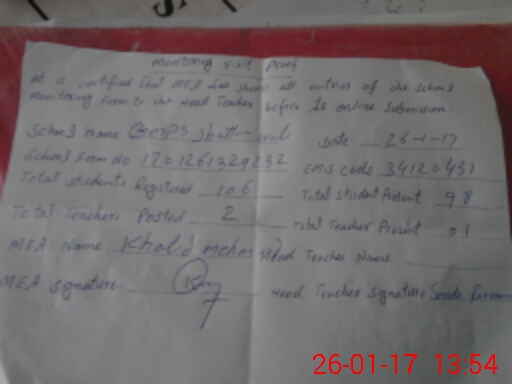 monitoring visit proof
It is certified that MEA has shown all entries of the school
monitoring form to the Head Teacher before its online submission.
School name GMPS Bhatti wali Date 26-1-17
School Form No 1701261329232 EMIS Code 34120451
Total students Registered 106 Total Student Present 98
Total Teachers Posted 2 Total Teacher Present 01
MEA Name Khalid mehmood Head Teacher Name
MEA signature Head Teacher Signature
26-01-17 13:54